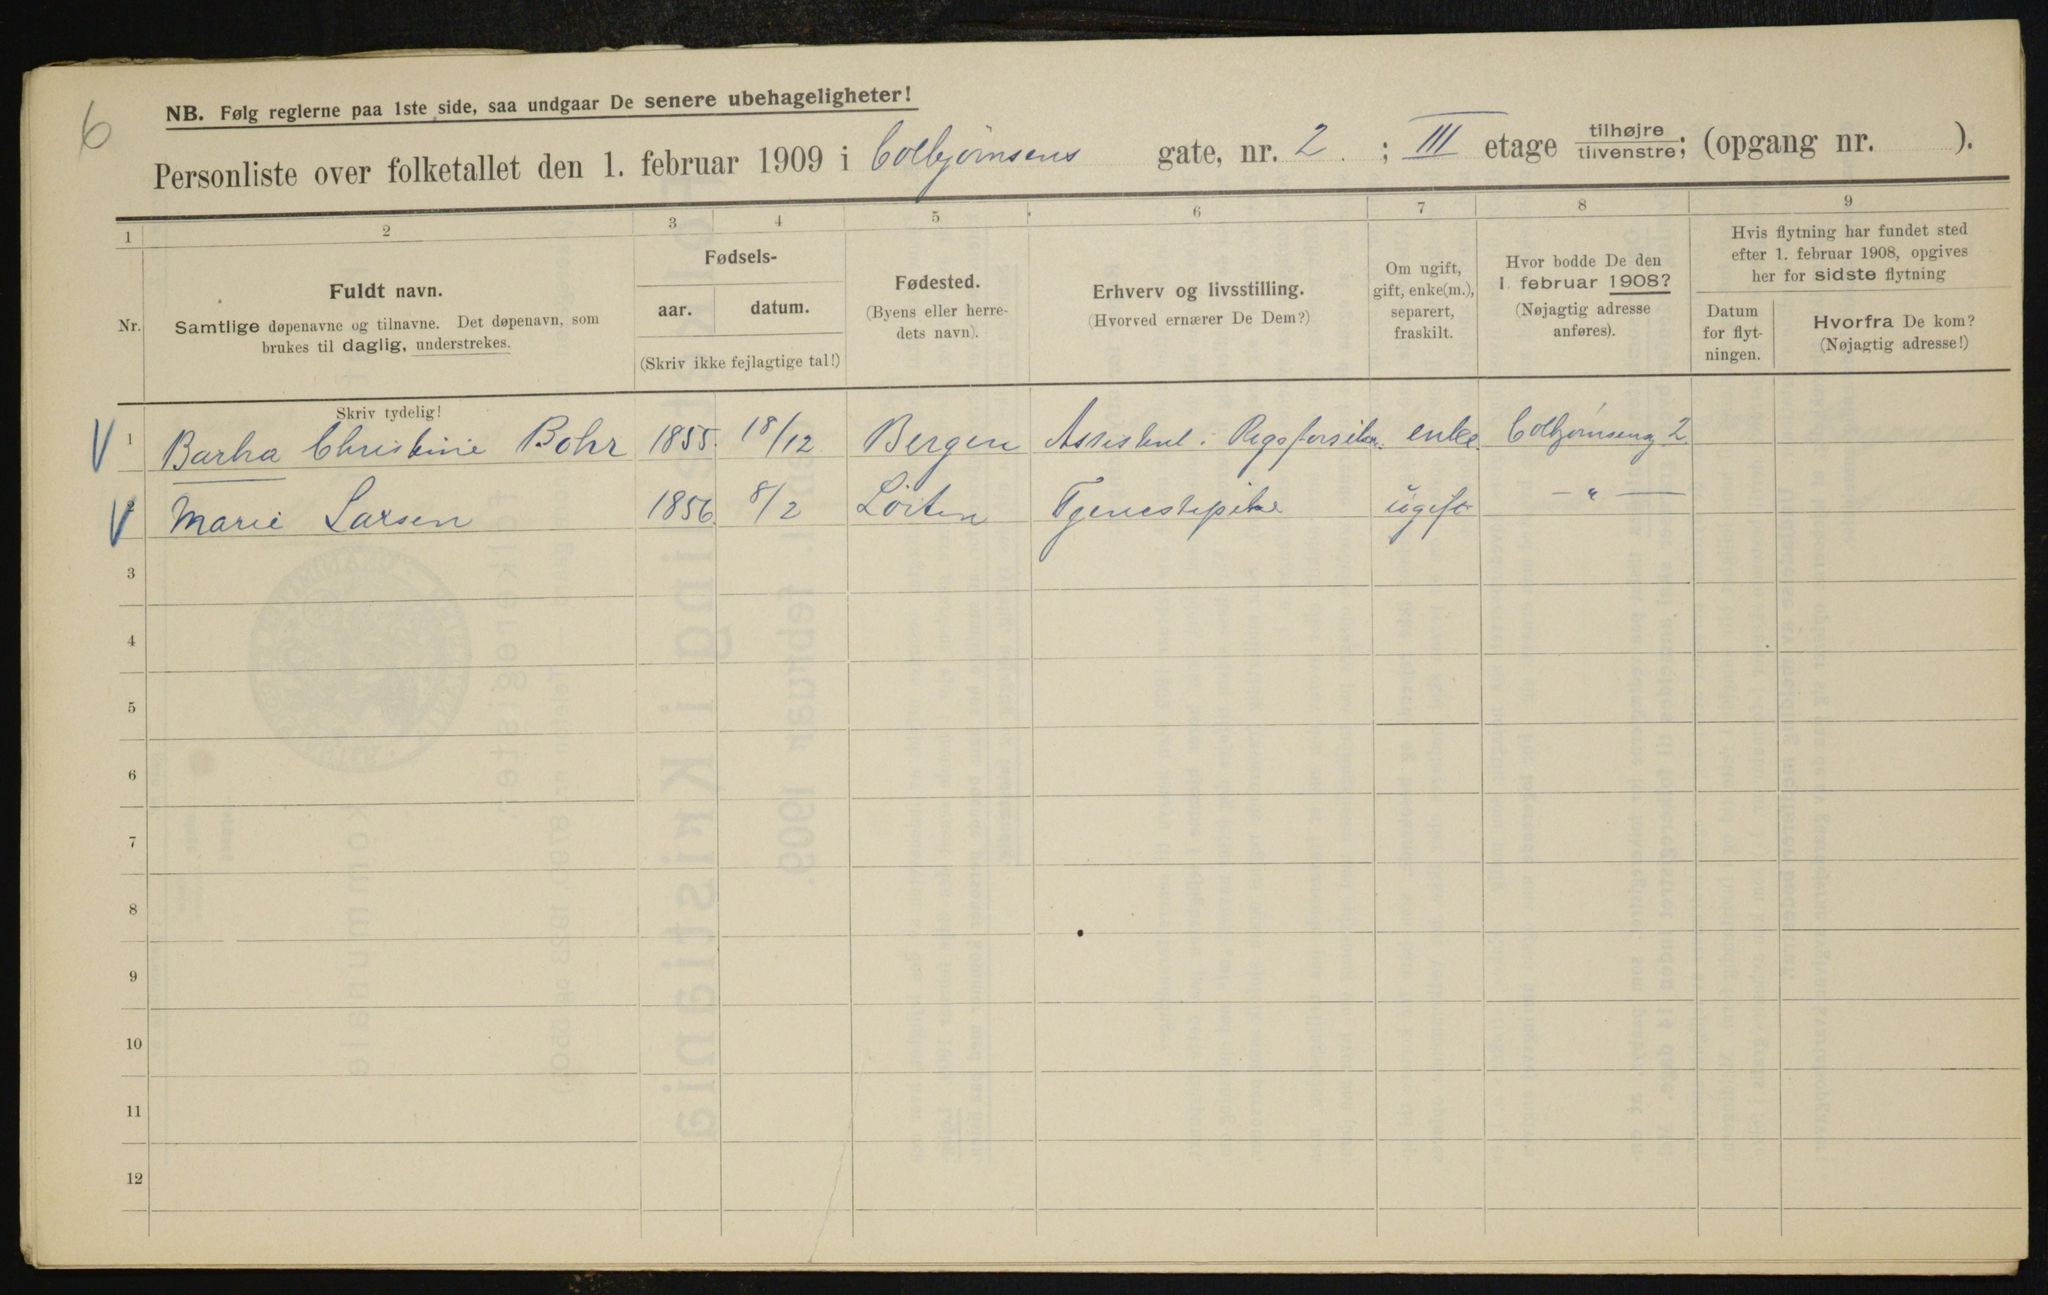 6
NB. Følg reglerne paa 1ste side, saa undgaar De senere ubehageligheter!
Personliste over folketallet den 1. februar 1909 i Colbjørnsens gate, nr. 2 ; III etage tilhøjre tilvenstre; (opgang nr. ).
1 2 3 4 5 6 7 8 9
Nr.
Fuldt navn.
Samtlige døpenavne og tilnavne. Det døpenavn, som
brukes til daglig, understrekes.
Skriv tydelig!
Fødsels-
aar. datum.
(Skriv ikke fejlagtige tal!)
Fødested.
(Byens eller herre-
dets navn).
Erhverv og livsstilling.
(Hvorved ernærer De Dem?)
Om ugift,
gift, enke(m.),
separert,
fraskilt.
Hvor bodde De den
1. februar 1908?
(Nøjagtig adresse
anføres).
Hvis flytning har fundet sted
efter 1. februar 1908, opgives
her for sidste flytning
Datum
for flyt-
ningen.
Hvorfra De kom?
(Nøjagtig adresse!)
V 1 Barba Christine Bohr 1855. 18/12 Bergen Assistent i enke. Colbjørnseng 2
V 2 Marie Larsen 1856 8/2 Löiten Tjenestepike ugift — " —
3
4
5
6
7
8
9
10
11
12